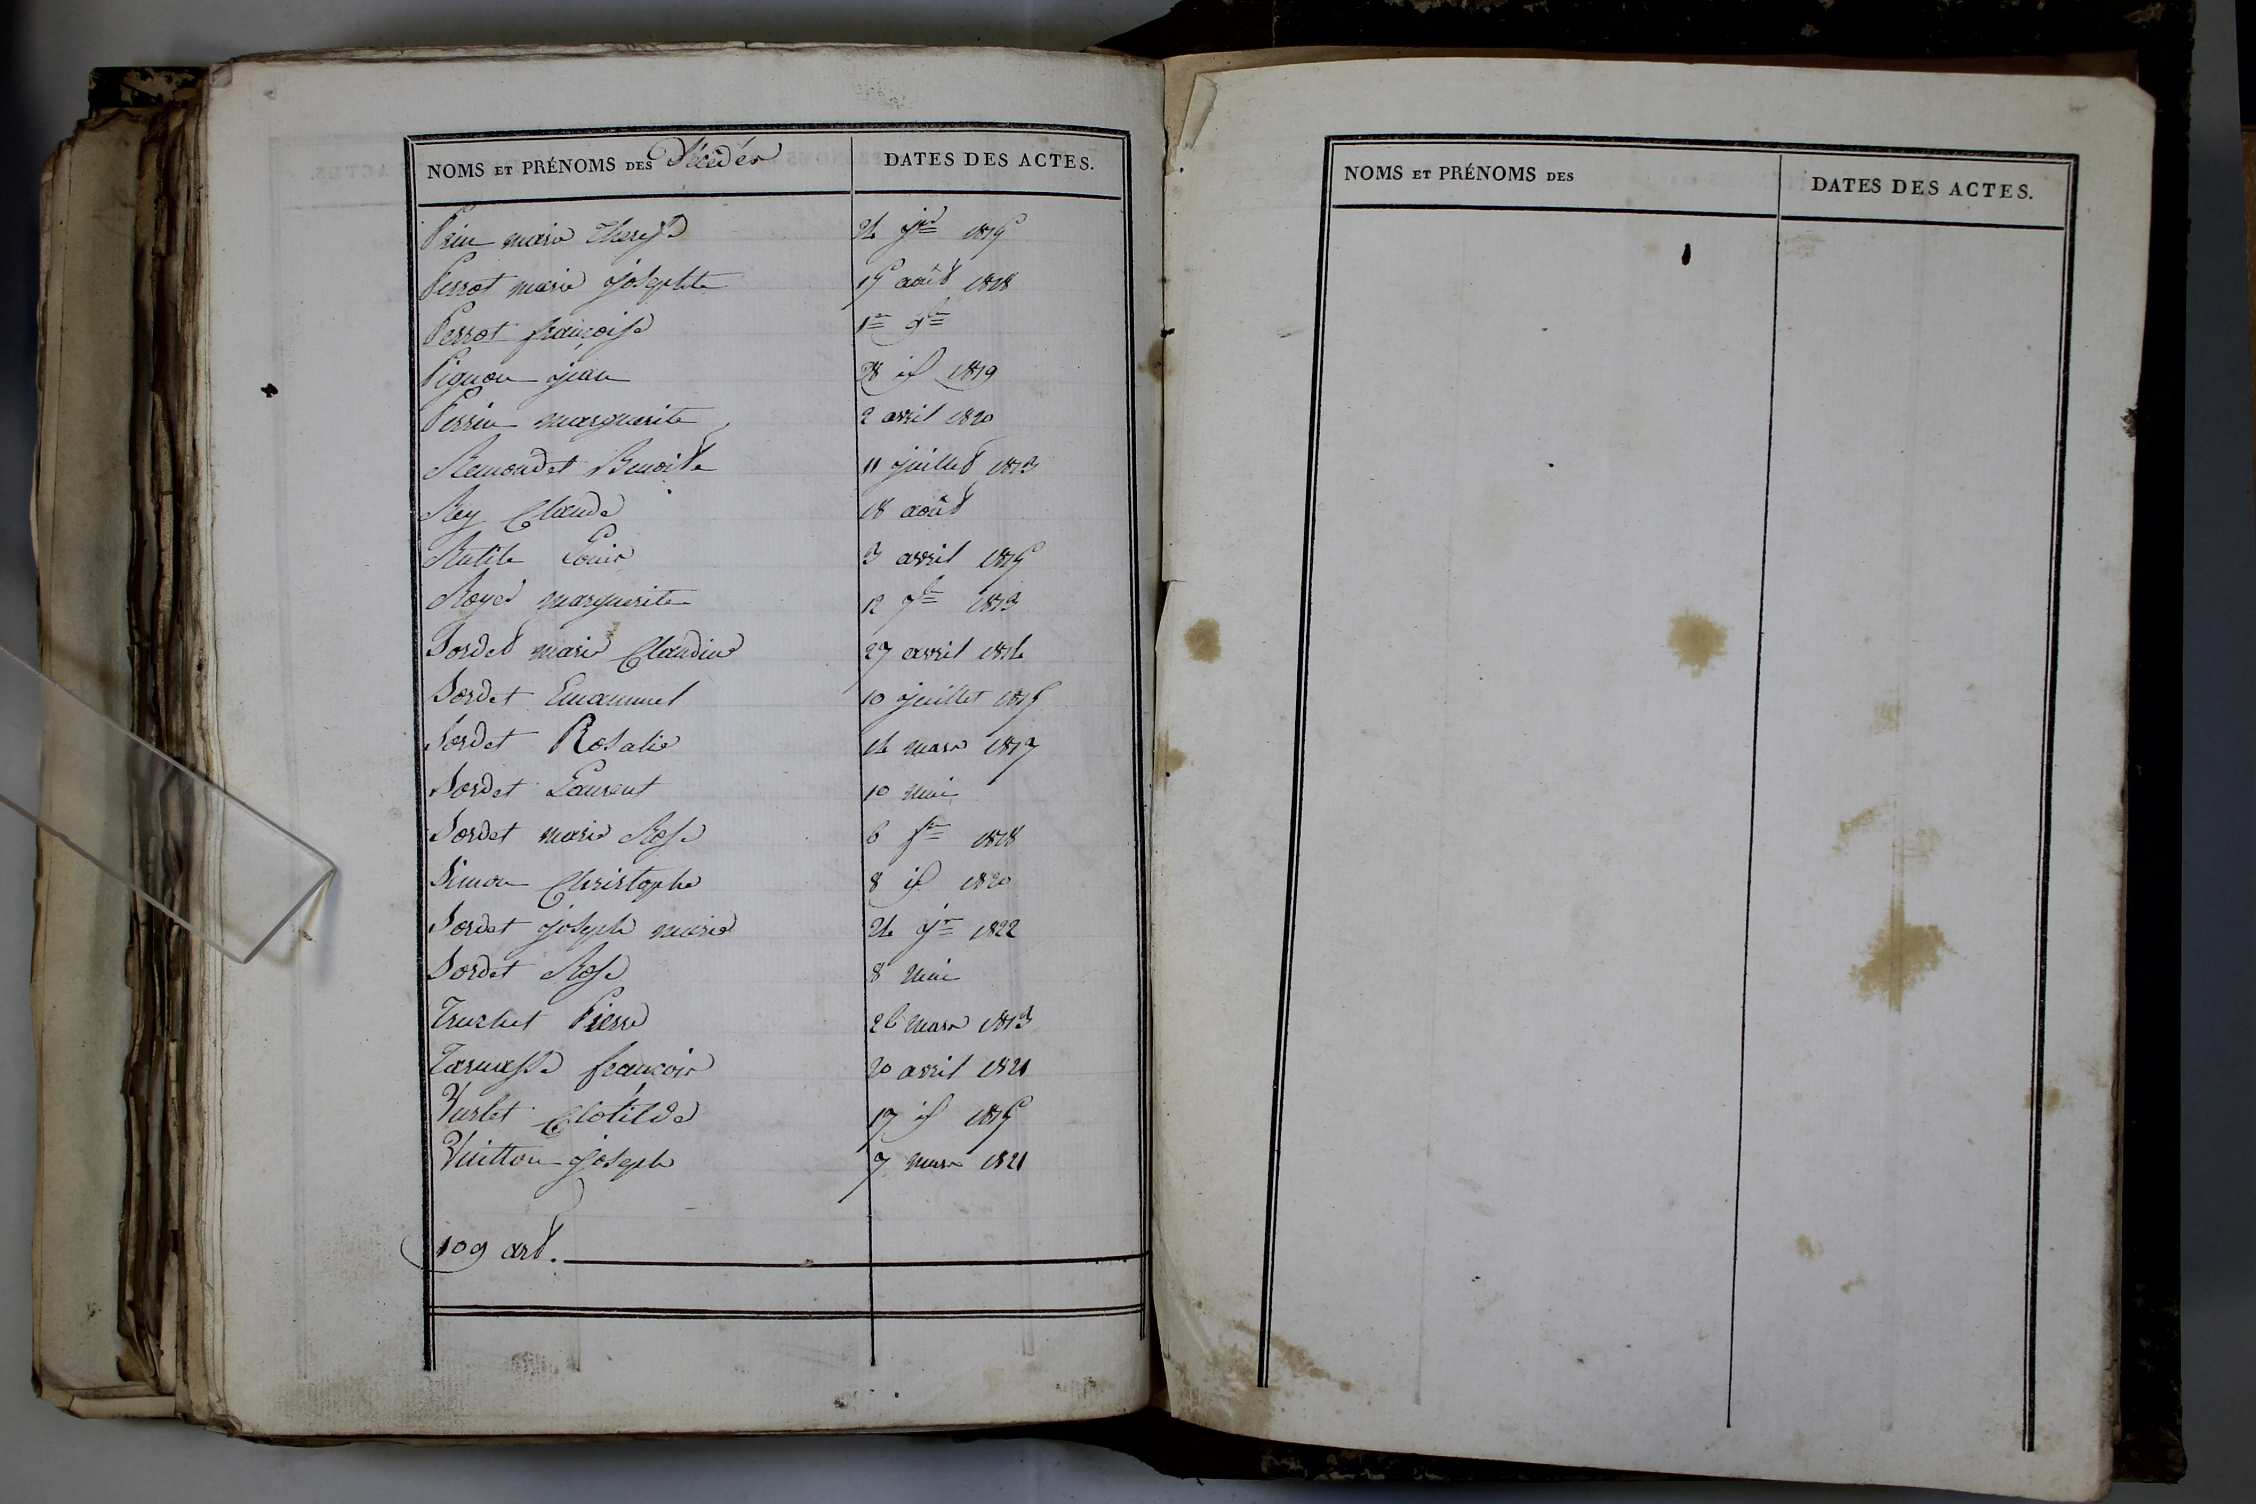 NOMS ET PRÉNOMS DES Décédés DATES DES ACTES.
Prin marie Therese 24 jer 1815
Perrot marie josephte 15 août 1818
Perrot françoise 1er
Pignon jean 28 id 1819
Perrin marguerite 2 avril 1820
Remondet Benoitte 11 juillet 1813
Rey Claude 18 août
Louis 3 avril 1815
Royer marguerite 12 7bre 1813
Sordet marie Claudine 27 avril 1814
Sordet Emanuel 10 juillet 1815
Sordet Rosalie 14 mars 1817
Sordet Laurent 10 mai
Sordet marie Rose 6 1818
Simon Christophe 8 id 1820
Sordet joseph marie 24 jer 1822
Sordet Rose 8 mai
Truchet Pierre 26 mars 1813
Tarnasse françois 20 avril 1821
Varlet Clotilde 17 id 1815
Vuitton joseph 7 mars 1821
109 art.
NOMS ET PRÉNOMS DES DATES DES ACTES.